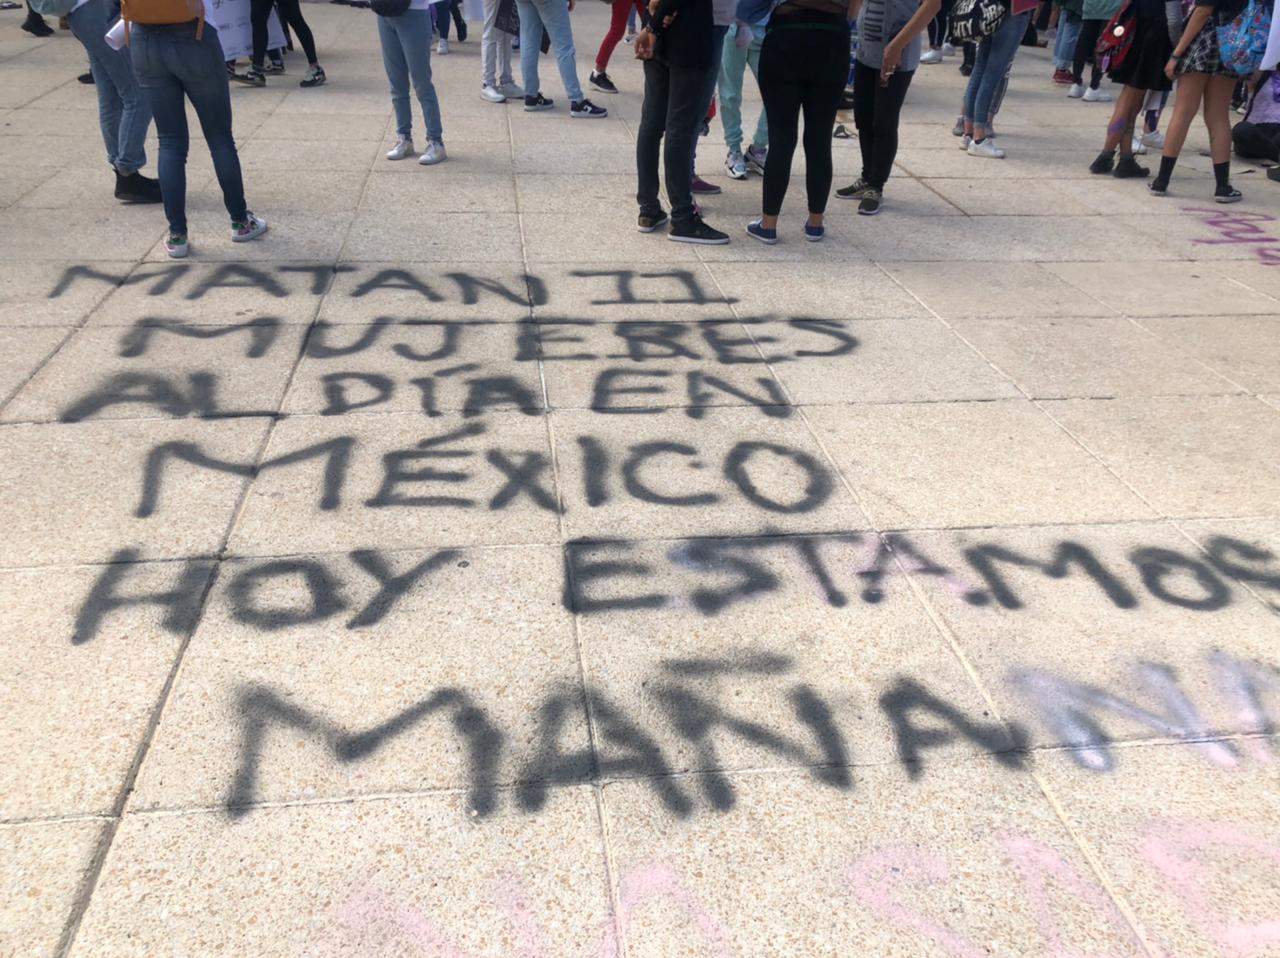 MATAN 11
MUJERES
AL DÍA EN
MÉXICO
HOY ESTAMOS
MAÑANA